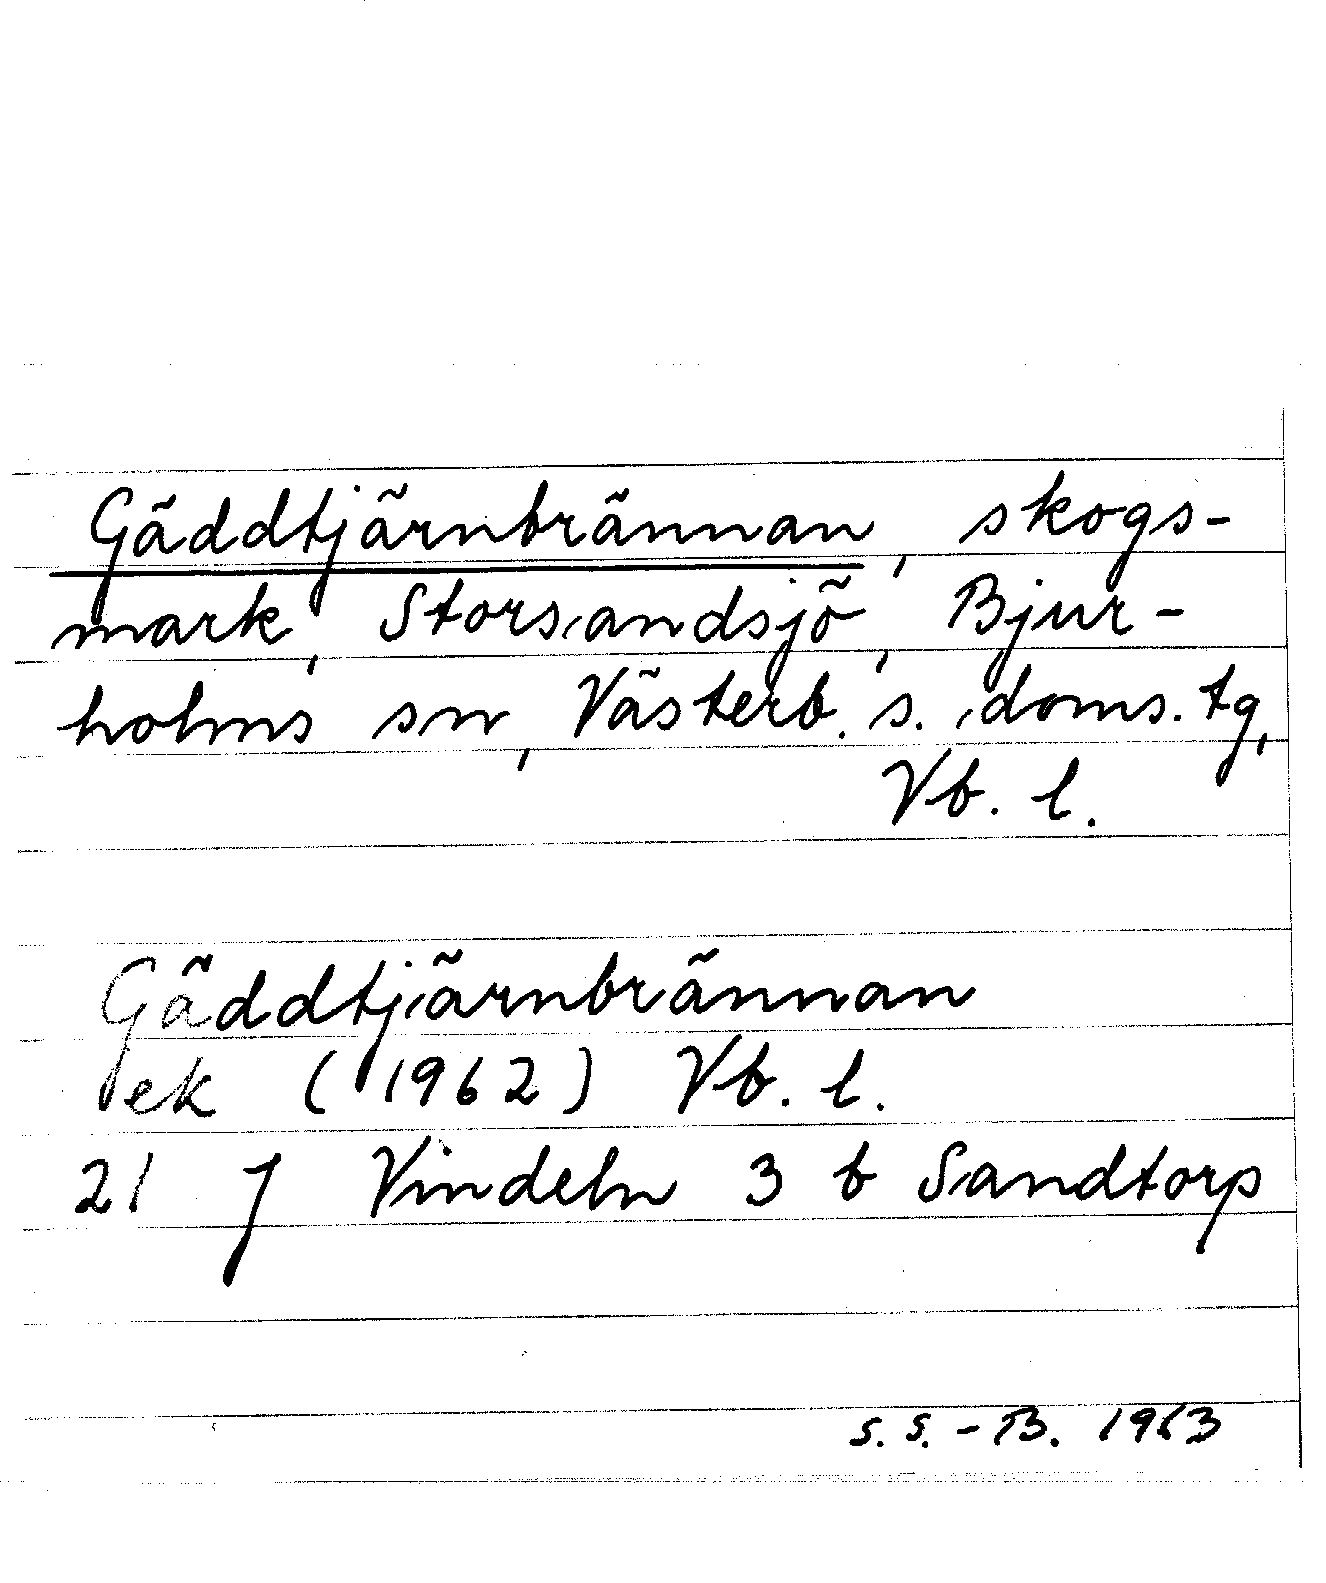 Gäddtjärnbrännan, skogs-
mark, Storsandsjö, Bjur-
holms sn, Västerb. s. doms. tg,
Vb. l.
Gäddtjärnbrännan
ek (1962) Vb. l.
21 J Vindeln 3 b Sandtorp
S. S. - B. 1963